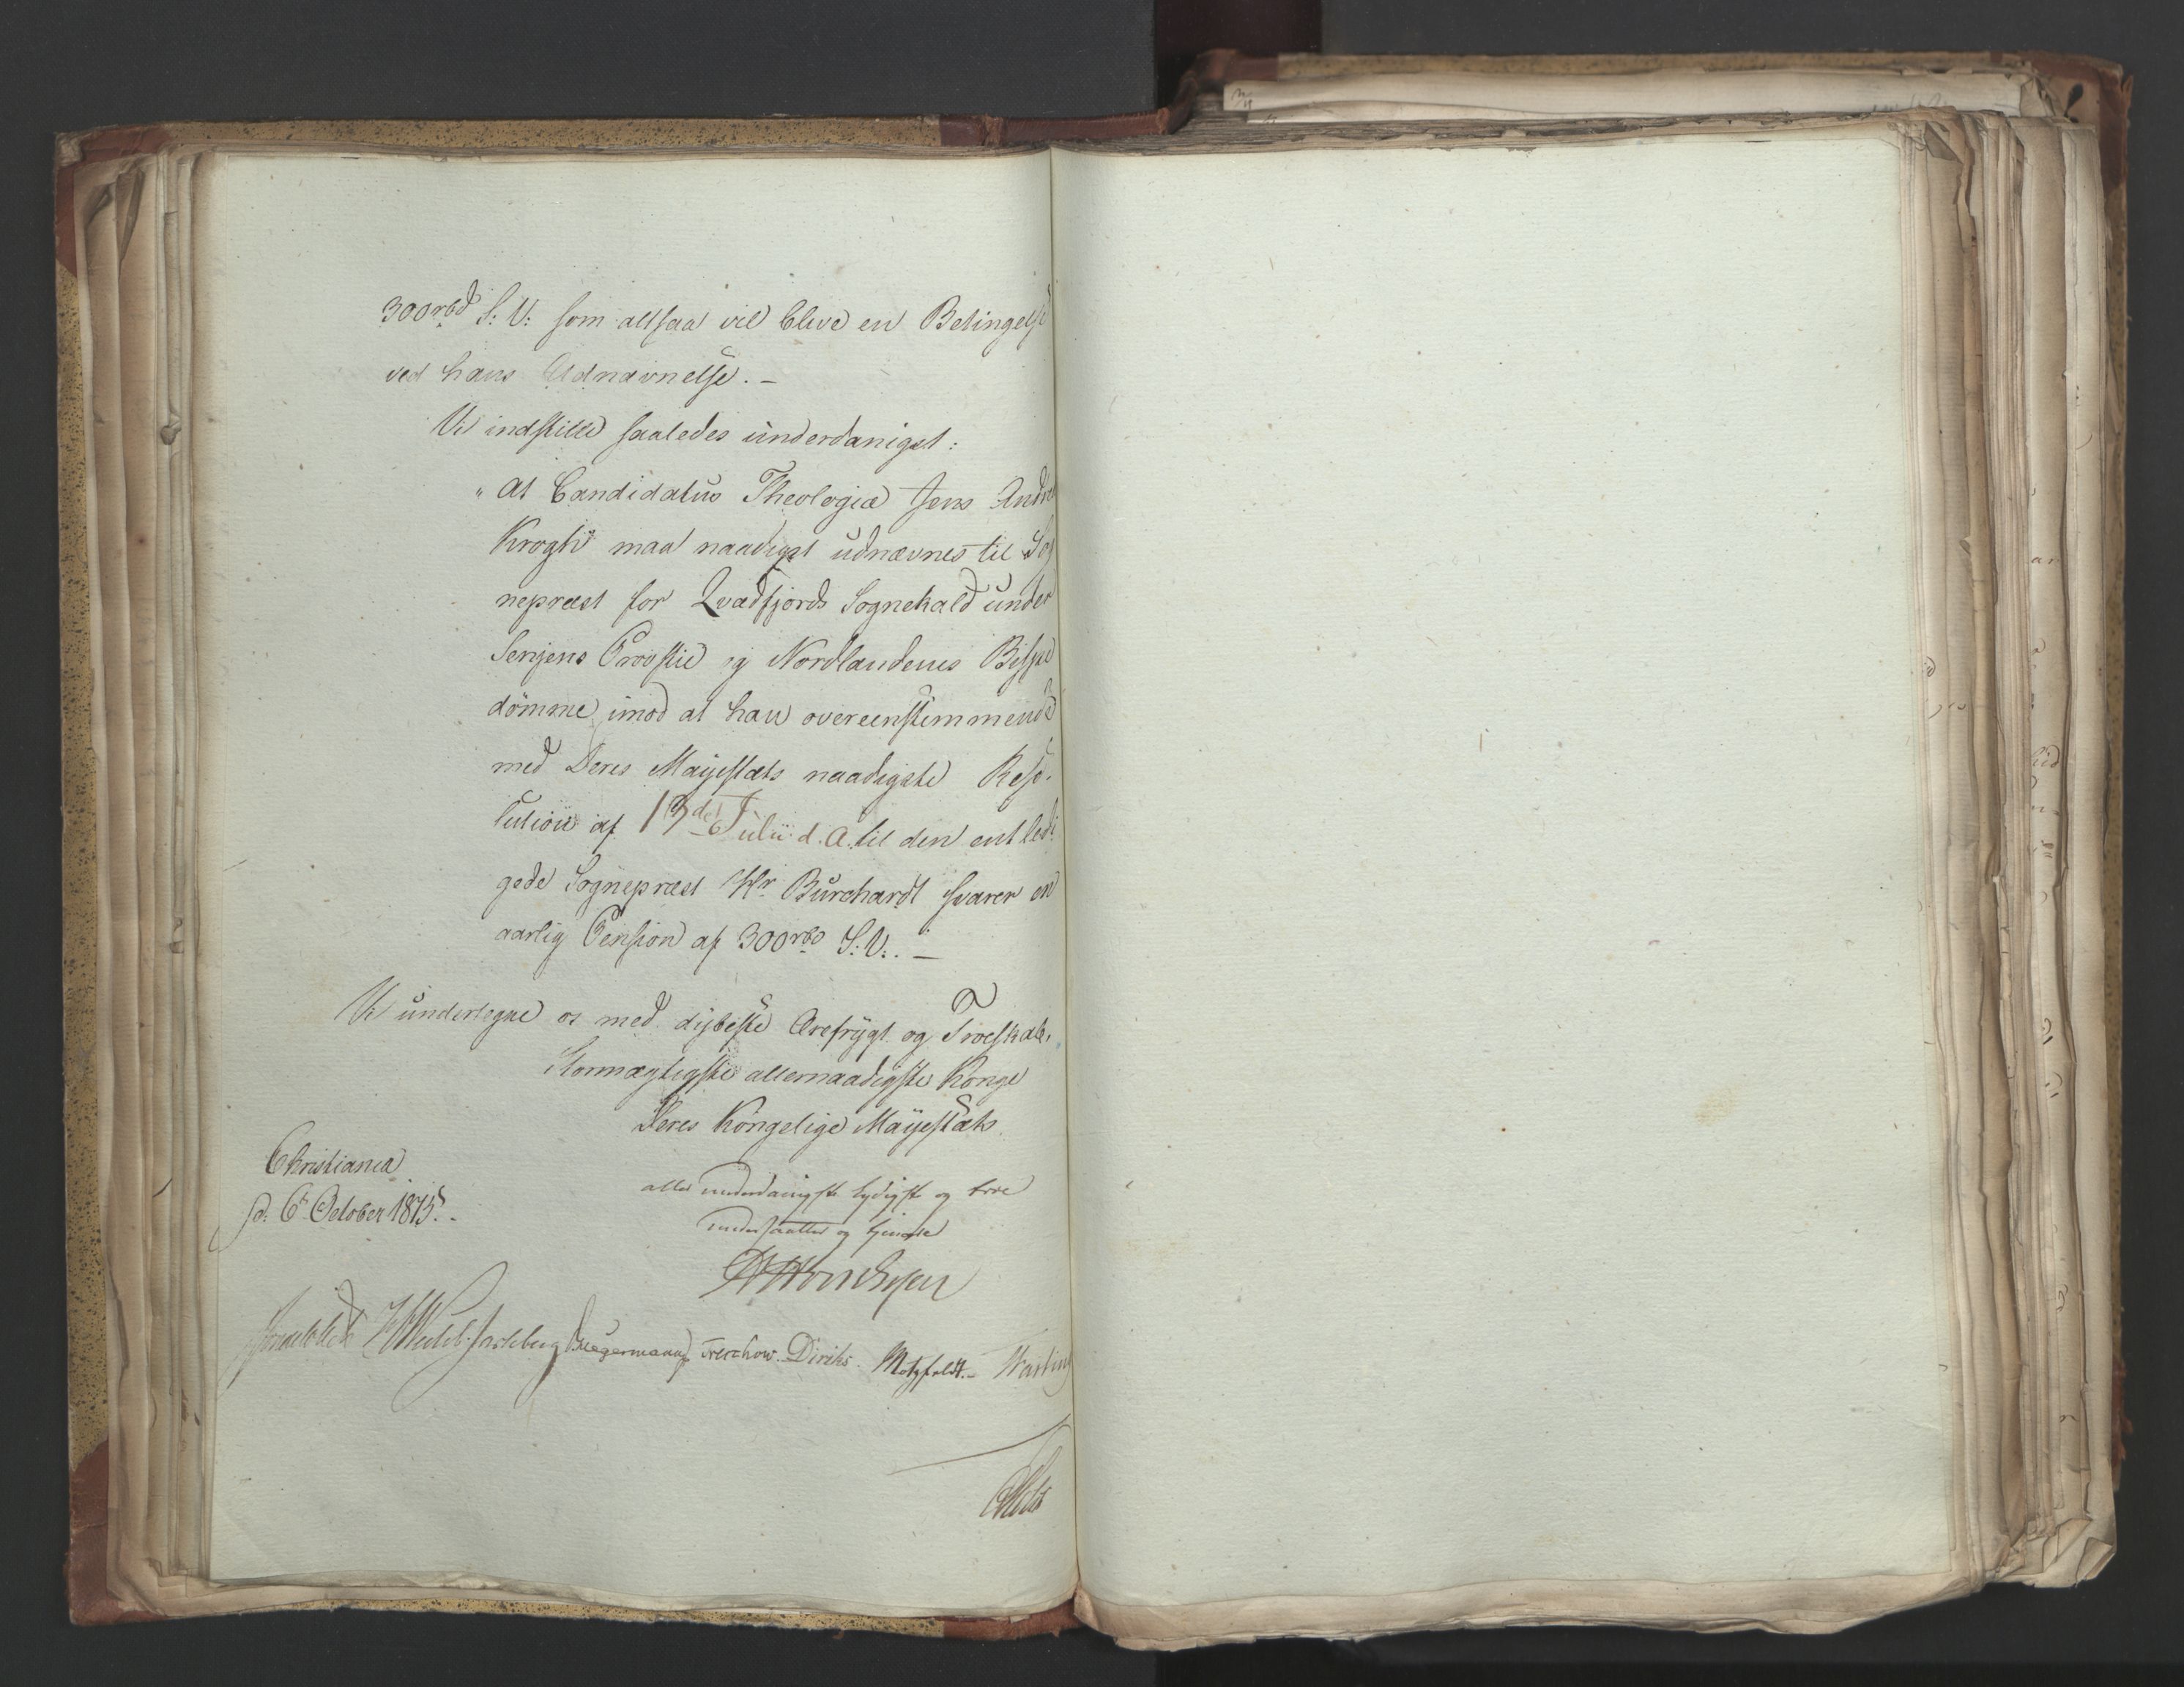 300 rbd S: V: som altsaa vil blive en Betingelse
ved hans Udnævnelse. –
Vi indstille saaledes underdanigst:
" at Candidatus Theologia Jens Andre
Krogh maa naadigst udnævnes til Sog
nepræst for Qvædfjords Sognekald under
Senjens Provstie og Nordlandenes Bispe
dömme, imod at han overeenstemmende
med Deres Majestæts naadigste Reso-
lution af 13de Julii d. A. til den entledi
gede Sognepræst Hr Burchardt svarer en
aarlig Pension af 300 rbd S: V: . –
Vi undertegne os med dybeste Ærefrygt og Troeskab,
Stormægtigste allernaadigste Konge
Deres Kongelige Majestæts
Christiania
d: 6te October 1815. -
aller underdanigste lydigste og troe
undersaatter og tjenere
Sommerhielm HWedel-Jarlsberg Krieger Treschow. Diriks. Motzfeldt. – Hartwig